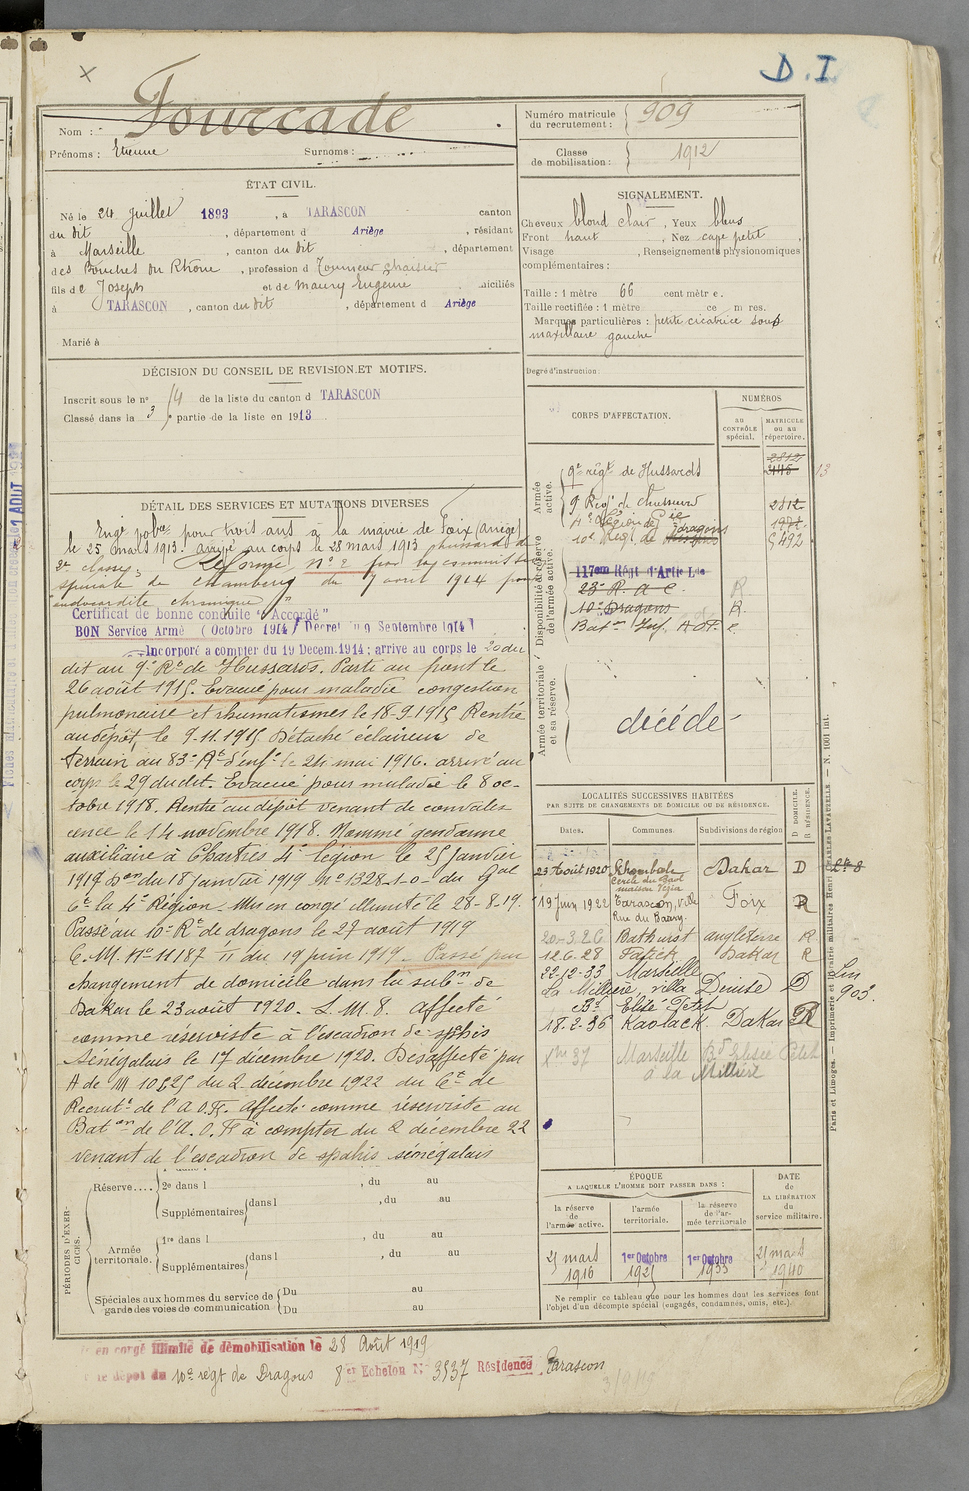 D.I.
Nom : Fourcade
Prénoms : Etienne Surnoms :
Numéro matricule du recrutement : 909
Classe de mobilisation : 1912
ÉTAT CIVIL.
Né le 24 Juillet 1893, à TARASCON canton
du dit, département d Ariège, résidant
à Marseille, canton du dit, département
des Bouches du Rhône, profession d Tourneur chaisier
fils de Joseph et de Maury Eugénie domiciliés
à TARASCON, canton du dit, département d Ariège
Marié à
SIGNALEMENT.
Cheveux blond clair, Yeux bleus
Front haut, Nez petit
Visage , Renseignements physionomiques
complémentaires :
Taille : 1 mètre 66 centimètre.
Taille rectifiée : 1 mètre
Marques particulières : petite cicatrice sous
maxillaire gauche
Degré d'instruction :
DÉCISION DU CONSEIL DE REVISION ET MOTIFS.
Inscrit sous le n° 14 de la liste du canton d TARASCON
Classé dans la 3e partie de la liste en 1913
DÉTAIL DES SERVICES ET MUTATIONS DIVERSES
Engé pour trois ans à la mairie de Foix (Ariège)
le 25 mars 1913. arrivé au corps le 28 mars 1913 hussard de
2e classe. Réformé n° 2 par la commission
spéciale de Chambéry du 7 avril 1914 pour
endocardite chronique
Certificat de bonne conduite "Accordé"
BON Service Armé (Octobre 1914) Décret du 9 Septembre 1914
Incorporé à compter du 19 Décem. 1914 ; arrivé au corps le 20 du
dit au 9e Rt de Hussards. Parti au front le
26 août 1915. Evacué pour maladie congestion
pulmonaire et rhumatismes le 18-9-1915 Rentré
au dépôt, le 9.11.1915 Détaché éclaireur de
terrain au 83e Rt d'Infie le 24 mai 1916. arrivé au
corps le 29 du dit. Evacué pour maladie le 8 oc-
tobre 1918. Rentré au dépôt venant de convales
cence le 14 novembre 1918. Nommé gendarme
auxiliaire à Chartres 4e légion le 25 Janvier
1919 Don du 18 janvier 1919 No 1328-1-0- du Gal
Ct la 4e Région. Mis en congé illimité le 28-8-19.
Passé au 10e Rt de dragons le 27 août 1919
C. M. No 11187 du 19 juin 1919. Passé par
changement de domicile dans la subon de
Dakar le 23 août 1920. L. M. 8. Affecté
comme réserviste à l'escadron de spahis
Sénégalais le 17 décembre 1920. Désaffecté par
A de M 10625 du 2 décembre 1922 du Ct de
Recrutt de l'A.O.F. Affecté comme réserviste au
Baton de l'A.O.F à compter du 2 décembre 22
venant de l'escadron de spahis sénégalais
CORPS D'AFFECTATION.
NUMÉROS
AU CONTRÔLE spécial.
MATRICULE OU AU répertoire.
Armée active.
9e régt de Hussards
9 Régt de Hussards 2812
4e Légion de Gie
10e Régt de dragons 6492
Disponibilité de réserve de l'armée active.
117eme Régt d'Artie Lde
23e R. A. C. R
10e Dragons R.
Baton Inf. AOF
Armée territoriale et sa réserve.
décédé
LOCALITÉS SUCCESSIVES HABITÉES
PAR SUITE DE CHANGEMENTS DE DOMICILE OU DE RÉSIDENCE.
Dates. Communes. Subdivisions de région D DOMICILE. R RÉSIDENCE.
23 Août 1920 Khombole Cercle du Baol Dakar D
19 juin 1922 Tarascon, ville Foix R
20-3.26 Bathurst angleterre R
12.6.28 Fatick Dakar R
22-12-33 Marseille
La Millière, villa Denise D
Bd Elisé Petit
18.2.36 Kaolack Dakar R
37 Marseille Bd Elisée Petit
à la Millière
903.
PÉRIODES D'EXERCICES.
Réserve.... 2e dans l , du au
Supplémentaires dans l , du au
Armée territoriale. 1re dans l , du au
Supplémentaires dans l , du au
Spéciales aux hommes du service de garde des voies de communication Du au
Du au
ÉPOQUE
A LAQUELLE L'HOMME DOIT PASSER DANS :
DATE de LA LIBÉRATION du service militaire.
la réserve de l'armée active.
l'armée territoriale.
la réserve de l'armée territoriale
25 mars 1916
1er Octobre 1925
1er Octobre 1933
25 mars 1940
Ne remplir ce tableau que pour les hommes dont les services font
l'objet d'un décompte spécial (engagés, condamnés, omis, etc.).
en congé illimité de démobilisation le 28 Août 1919
le dépôt du 10e régt de Dragons 8e Echelon N° 3537 Résidence Tarascon
Paris et Limoges. — Imprimerie et librairie militaires Henri CHARLES-LAVAUZELLE. — N. 1001 int.